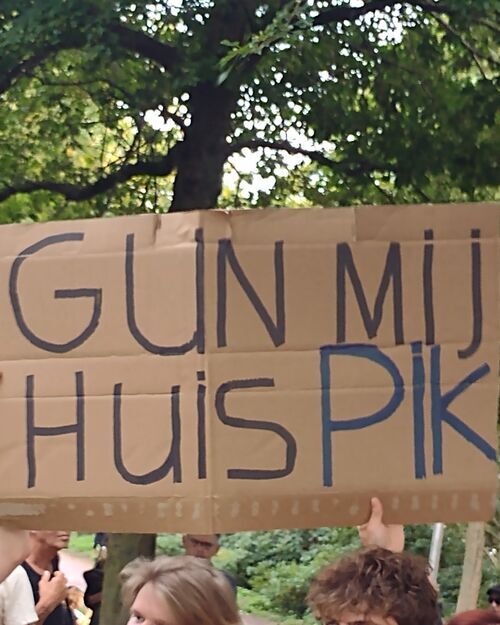 GUN MIJ
HUIS PIK